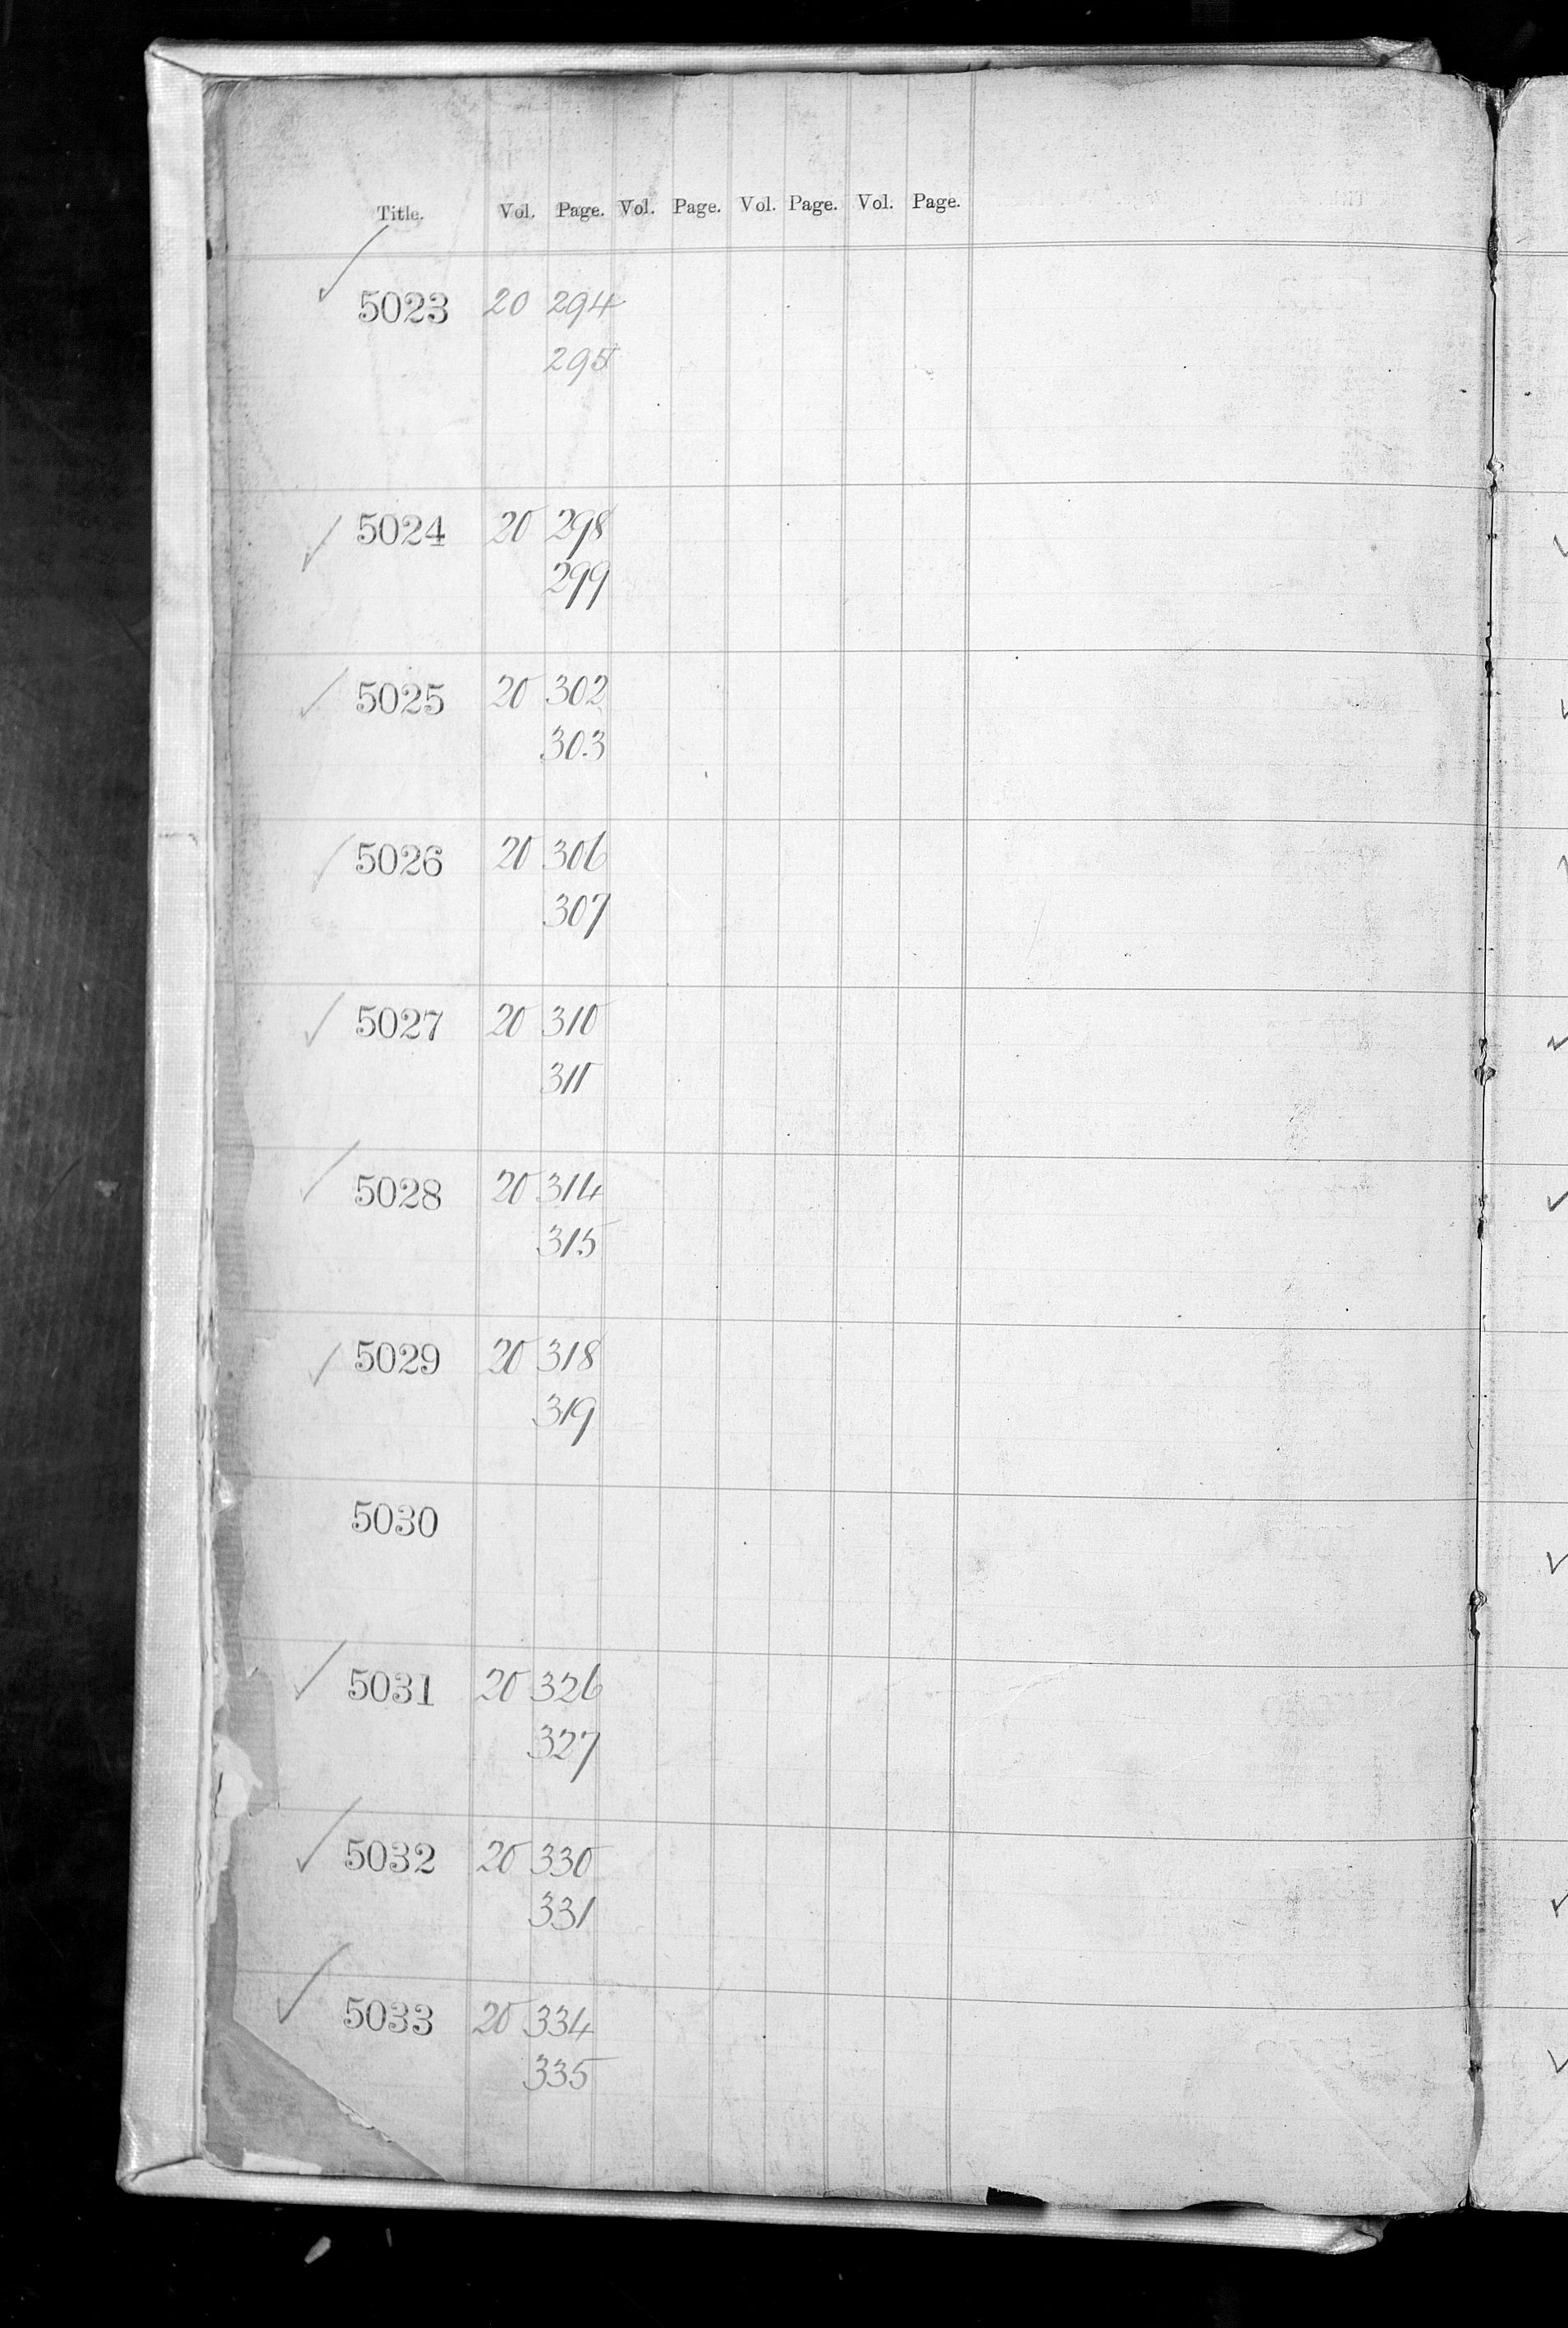 Title. Vol. Page. Vol. Page. Vol. Page. Vol. Page.
✓ 5023 20 294
295
✓ 5024 20 298
299
✓ 5025 20 302
303
✓ 5026 20 306
307
✓ 5027 20 310
311
✓ 5028 20 314
315
✓ 5029 20 318
319
5030
✓ 5031 20 326
327
✓ 5032 20 330
331
✓ 5033 20 334
335